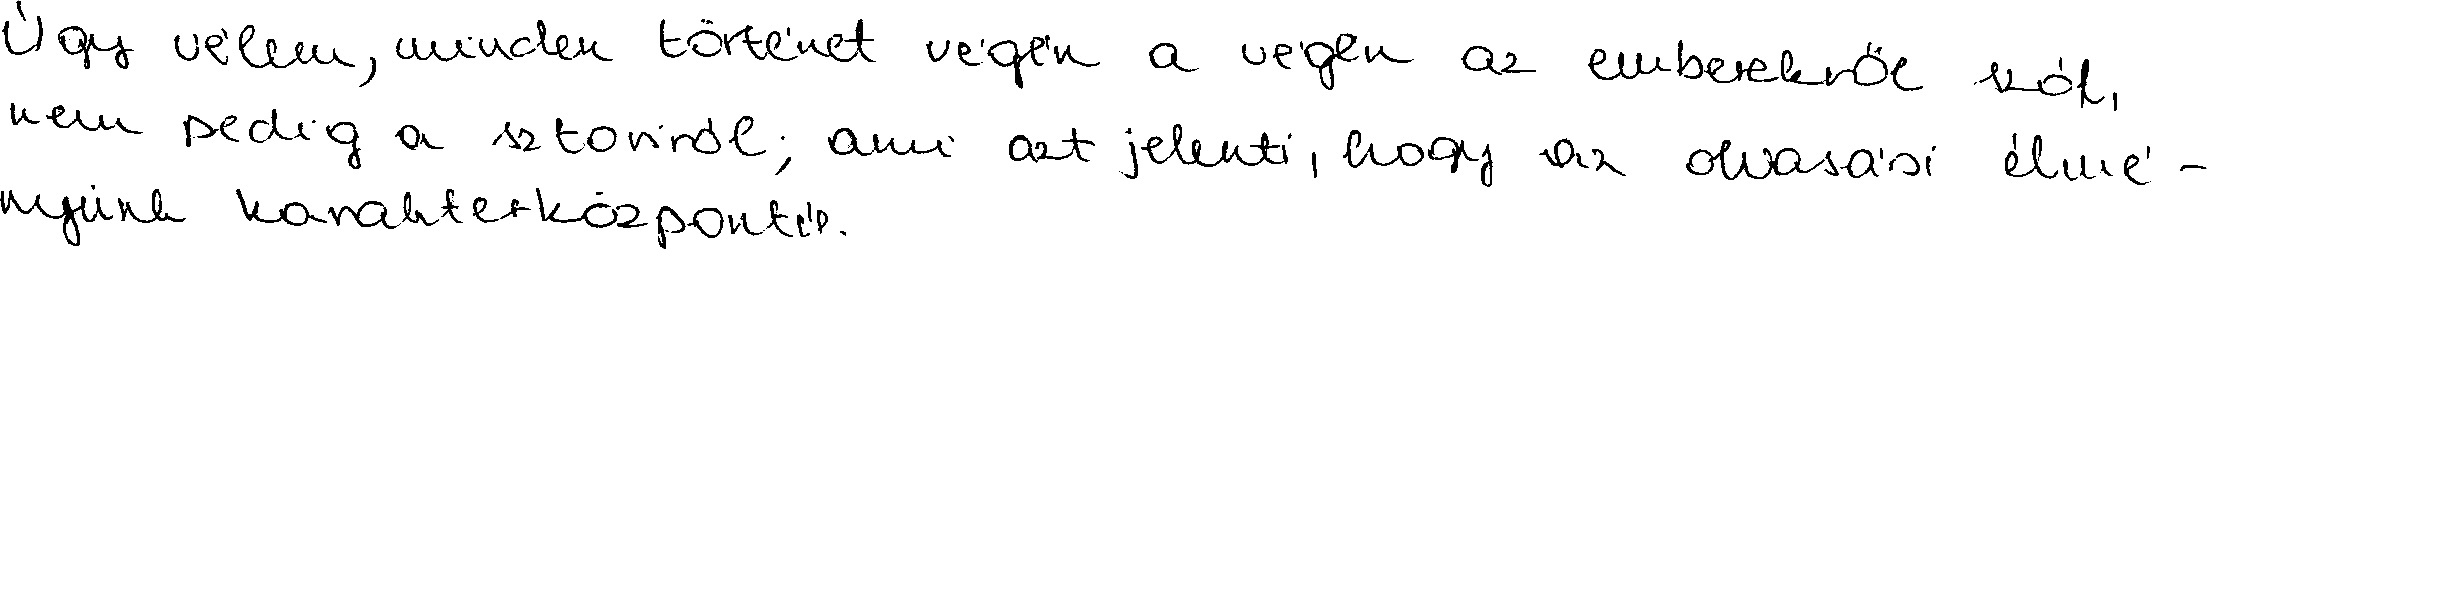 Úgy vélem, minden történet végén a végén az emberekről szól,
nem pedig a sztoriról; ami azt jelenti, hogy az olvasási élmé-
nyünk karakterközpontú.